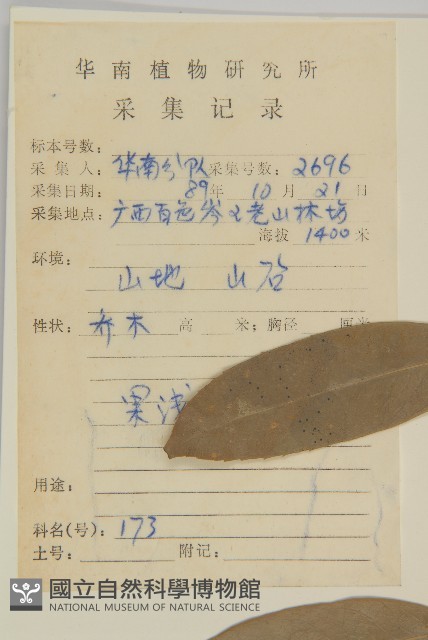 华南植物研究所
采集记录
标本号数:
采集人: 华南分队 采集号数: 2696
采集日期: 89年 10月 21日
采集地点: 广西百色岑王老山林场
海拔 1400米
环境:
山地 山谷
性状: 乔木 高 米; 胸径 厘米
果浅
用途:
科名(号): 173
土号: 附记:
國立自然科學博物館
NATIONAL MUSEUM OF NATURAL SCIENCE